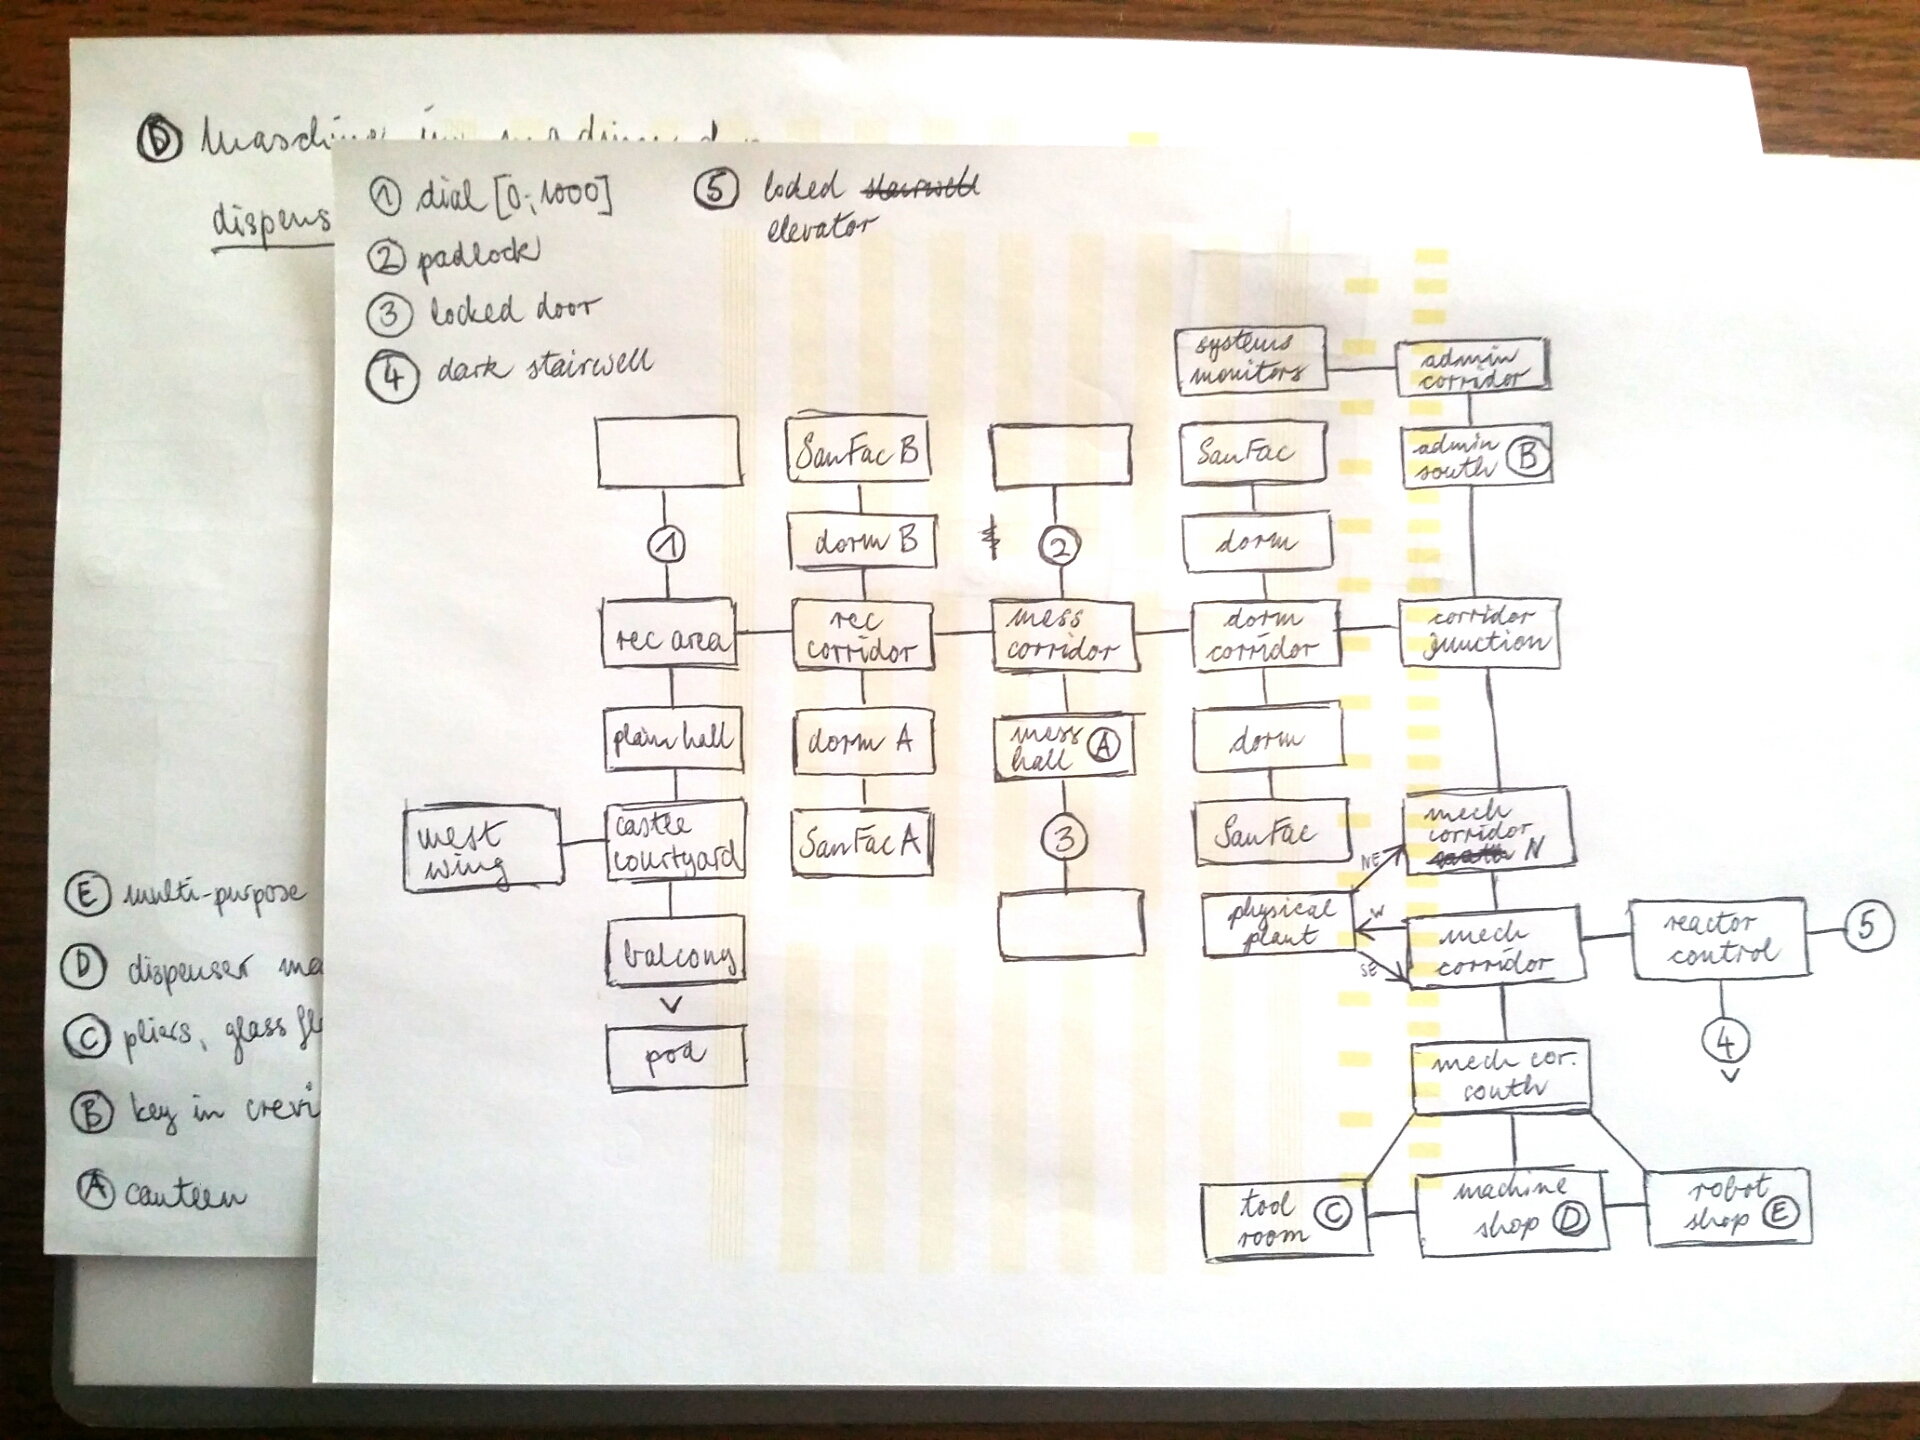 D
dispens
E multi-purpose
D dispenser ma
C pliers, glass fl
B key in crevi
A canteen
1 dial [0; 1000]
2 padlock
3 locked door
4 dark stairwell
5 locked stairwell
elevator
systems
monitors
admin
corridor
SanFac B
SanFac
admin
south B
1
dorm B
2
dorm
rec area
rec
corridor
mess
corridor
dorm
corridor
corridor
junction
plain hall
dorm A
mess
hall A
dorm
west
wing
castle
courtyard
SanFac A
3
SanFac
mech
corridor
N
NE
balcony
physical
plant
W
SE
mech
corridor
reactor
control
5
pod
mech cor.
south
4
tool
room C
machine
shop D
robot
shop E